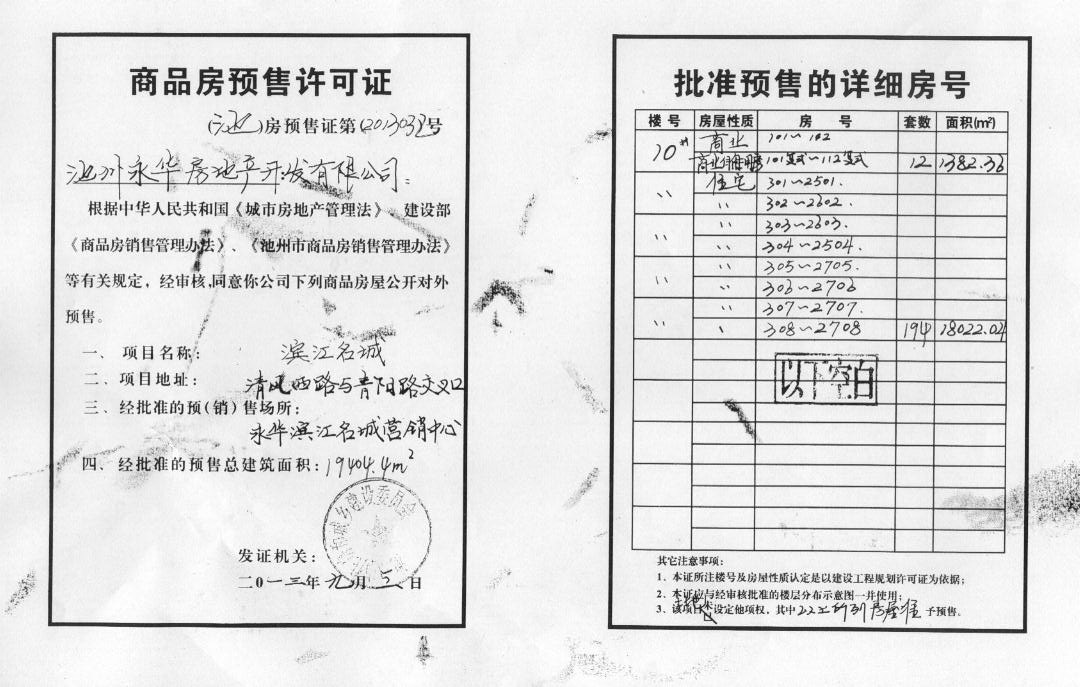 商品房预售许可证
(池)房预售证第(2013039)号
池州永华房地产开发有限公司:
根据中华人民共和国《城市房地产管理法》、建设部
《商品房销售管理办法》、《池州市商品房销售管理办法》
等有关规定，经审核,同意你公司下列商品房屋公开对外
预售。
一、项目名称: 滨江名城
二、项目地址: 清风西路与青阳路交叉口
三、经批准的预(销)售场所:
永华滨江名城营销中心
四、经批准的预售总建筑面积: 19404.4m²
发证机关:
二0一三年九月三日
批准预售的详细房号
楼号 房屋性质 房号 套数 面积(㎡)
10# 商业 101~102
商业 101复式~112复式 12 1382.36
〃 住宅 301~2501.
〃 302~2602.
〃 〃 303~2603.
〃 304~2504.
〃 〃 305~2705.
〃 306~2706
〃 〃 307~2707.
〃 308~2708 194 18022.04
以下空白
其它注意事项:
1、本证所注楼号及房屋性质认定是以建设工程规划许可证为依据;
2、本证应与经审核批准的楼层分布示意图一并使用;
3、该项目未设定他项权，其中以上所列房屋准予预售。